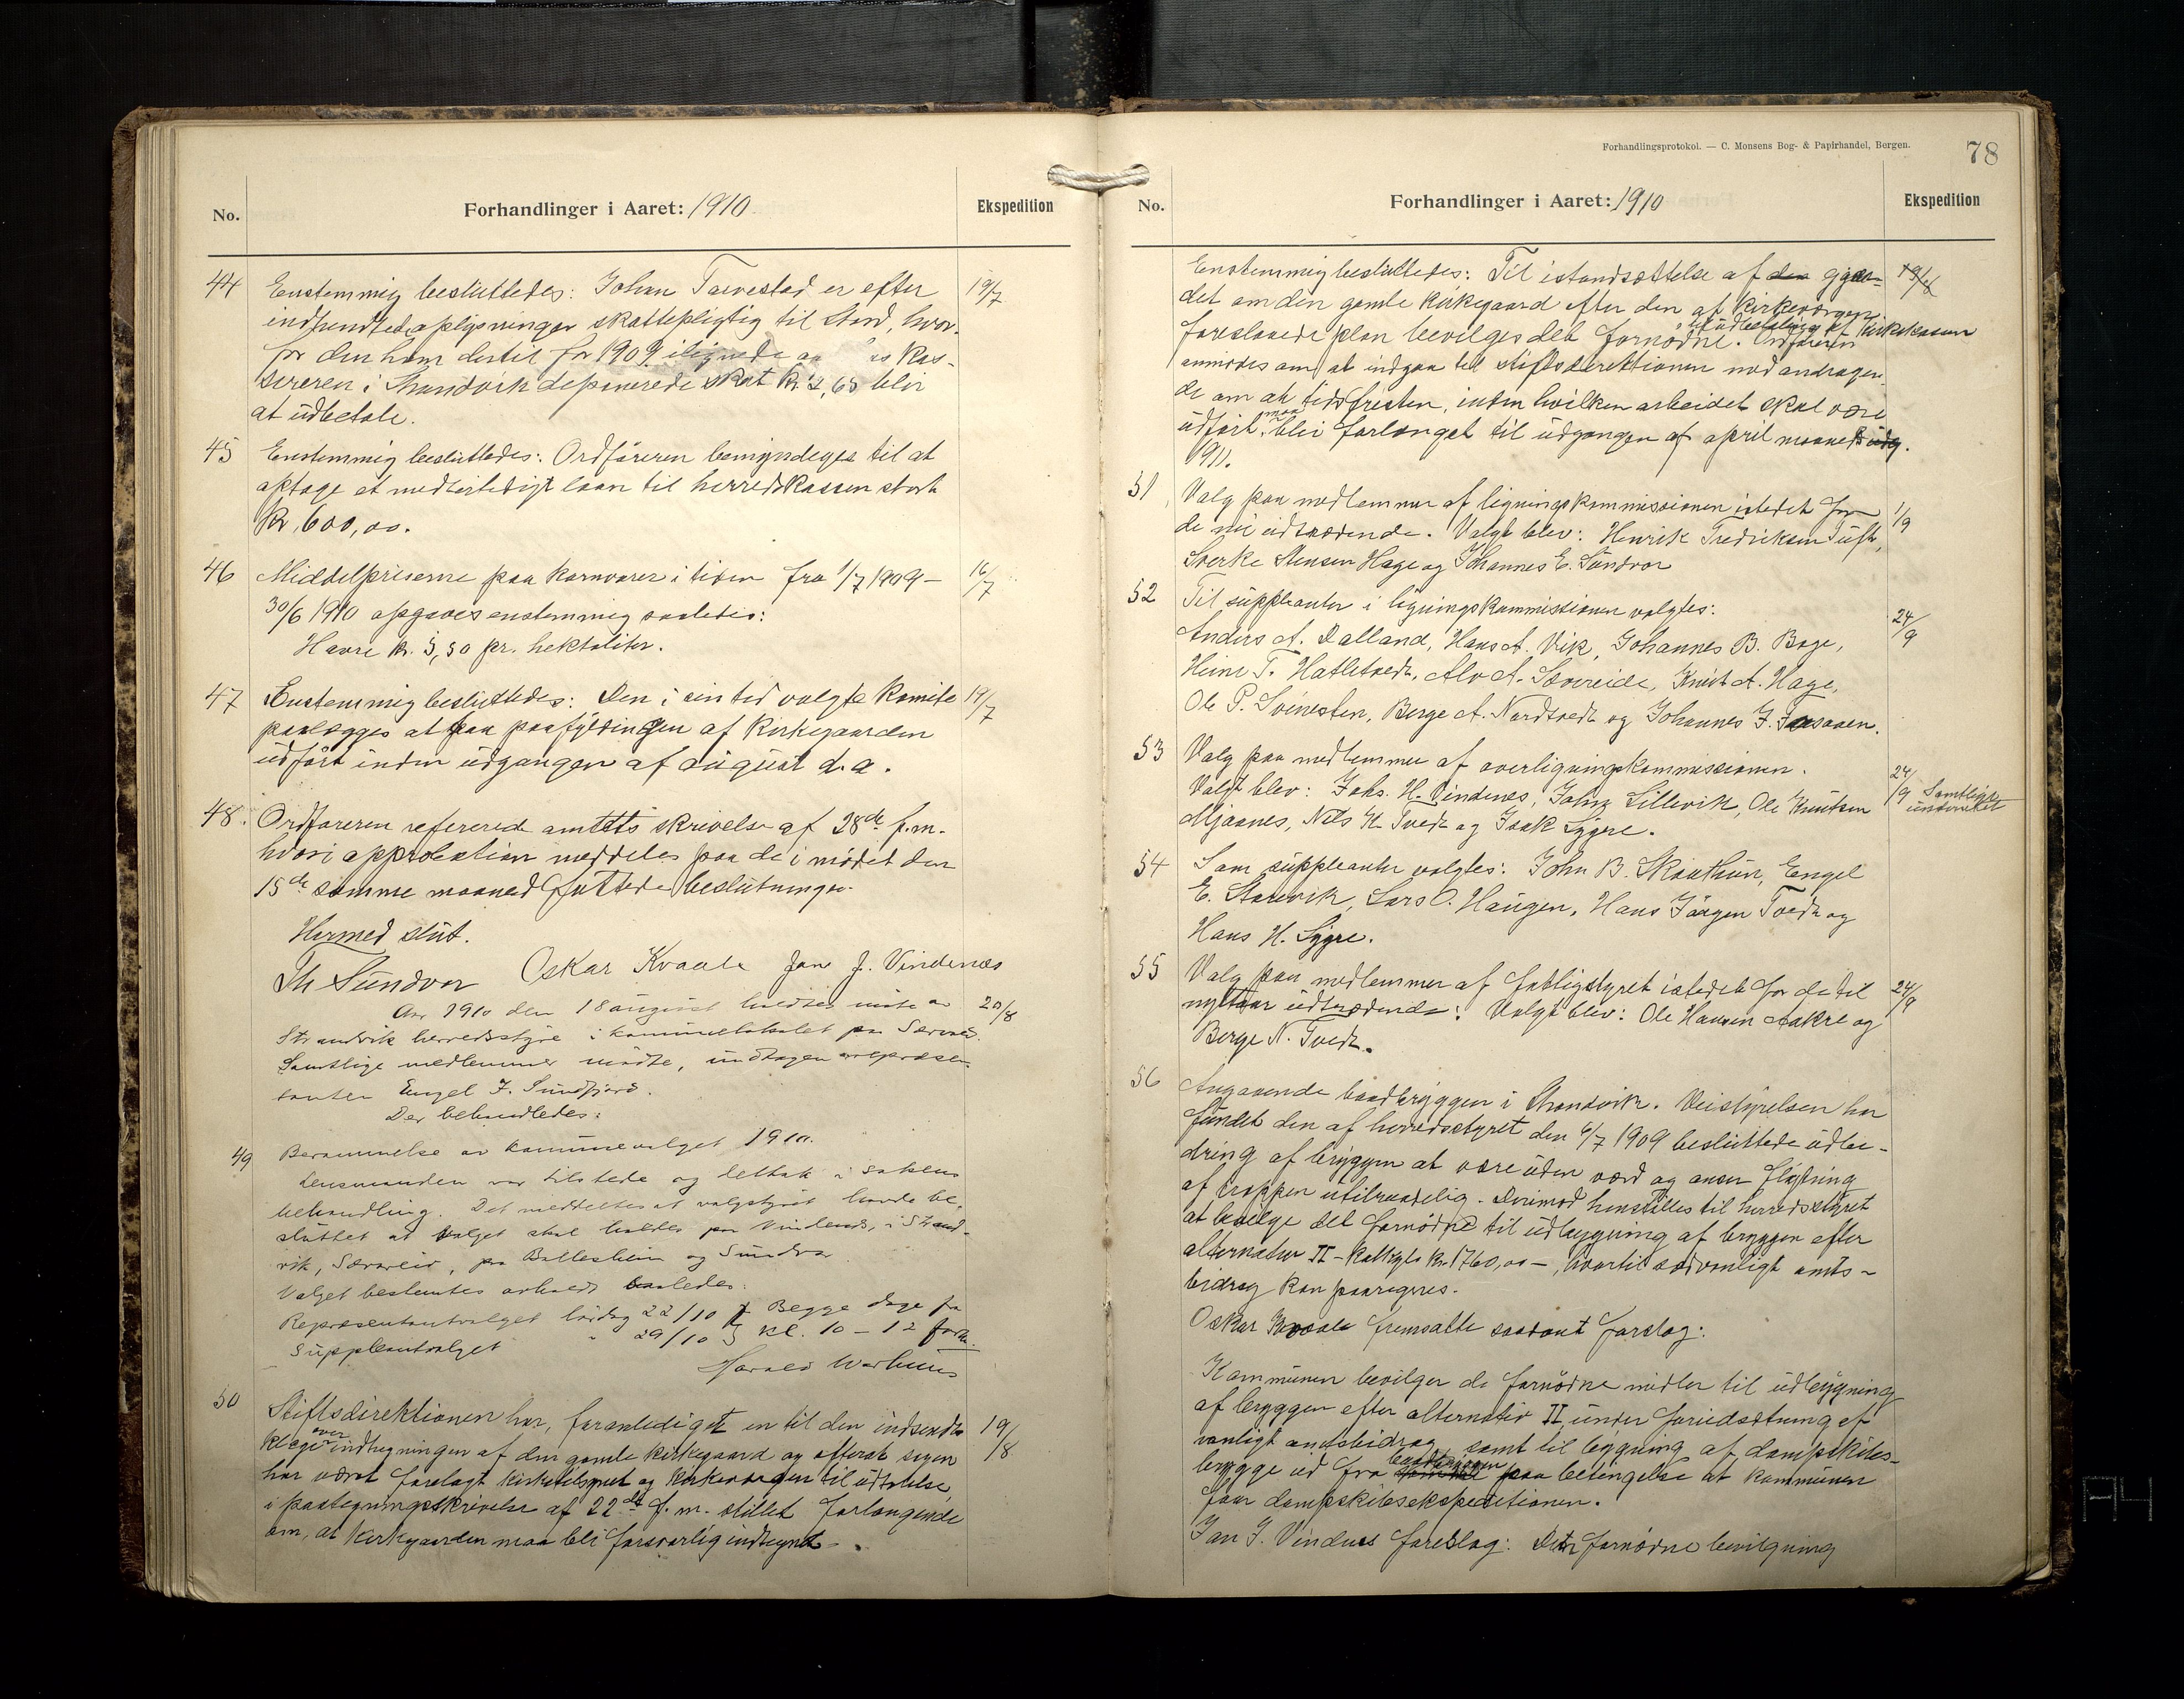 No.
Forhandlinger i Aaret: 1910
Ekspedition
44
Enstemmig besluttedes: Johan Tarvestad er efter
19/7
indhentede oplysninger skattepligtig til Stord, hvor-
for den ham dertil for 1909 ilignede kas-
sereren i Strandvik deponerede skat kr. blir
at udbetale.
45
Enstemmig besluttedes: Ordføreren bemyndiges til at
optage et midlertidigt laan til herredskassen stort
Kr. 600,00.
46
Middelpriserne paa kornvarer i tiden fra 1/7 1909 –
16/7
30/6 1910 opgaves enstemmig saaledes:
Havre kr. 5,50 pr. hektoliter.
47
Enstemmig besluttedes: Den i sin tid valgte komite
19/7
paalægges at faa paafyldingen af kirkegaarden
udført inden udgangen af august d.a.
48.
Ordføreren refererede amtets skrivelse af 28de f.m.
hvori approbation meddeles paa de i mødet den
15de samme maaned fattede beslutninger.
Hermed slut.
Th Sundvor Oskar Kvaale Jan J. Vindenes
Aar 1910 den 18 august holdtes møte av
20/8
Strandvik herredsstyre i kommunelokalet paa Sævareid.
Samtlige medlemmer mødte, undtagen repræsen-
tanten Engel J. Sundfjord.
Der behandledes:
49
Berammelse av kommunevalget 1910.
Lensmanden var tilstede og deltok i sakens
behandling. Det meddeltes at valgstyret havde be-
sluttet at valget skal holdes paa Vindenes, i Strand-
vik, Sævareid, paa Balleshiem og Sundvor
Valget bestemtes avholdt saaledes:
Repræsentantvalget lørdag 22/10 } Begge dage fra
Suppleantvalget " 29/10 } kl. 10 – 12 form.
Harald Warhuus
50
Stiftsdirektionen har, foranlediget en til den indsendte
19/8
klage over indhegningen af den gamle kirkegaard og efterat sagen
har været forelagt kirketilsynet og kirkevergen til udtalelse
i paategningsskrivelse af 22de f.m. stillet forlangende
om, at kirkegaarden maa bli forsvarlig indhegnet.
Forhandlingsprotokol. — C. Monsens Bog- & Papirhandel, Bergen.
78
No.
Forhandlinger i Aaret: 1910
Ekspedition
Enstemmig besluttedes: Til istandsættelse af den gjær-
19/8
det om den gamle kirkegaard efter den af kirkevergen
foreslaaede plan bevilges det fornødne til udbetaling af kirkekassen. Ordføreren
anmodes om at indgaa til stiftsdirektionen med andragen-
de om at tidsfristen, inden hvilken arbeidet skal være
udført, maa bli forlænget til udgangen af april maaned
1911.
51
Valg paa medlemmer af ligningskommissionen istedet for
1/9
de nu udtrædende. Valgt blev: Henrik Fredriksen Tuft,
Sverke Stensen Hage og Johannes E. Sundvor
52
Til suppleanter i ligningskommissionen valgtes:
24/9
Anders A. Dalland, Hans A. Vik, Johannes B. Boge,
Heine T. Hatletvedt, Alv A. Sævereide, Knut A. Hage,
Ole P. Svinesten, Berge A. Nordtvedt og Johannes J.
53
Valg paa medlemmer af overligningskommissionen.
24/9 Samtlige underrettet
Valgt blev: Johs. H. Vindenes, Johs Lillevik, Ole Knutsen
Mjaanes, Nils K. Tvedt og Isak Lygre.
54
Som suppleanter valgtes: John B. Skauthun, Engel
E. Stanevik, Lars O. Haugen, Hans Jørgen Tvedt og
Hans H. Lygre.
55
Valg paa medlemmer af fattigstyret istedet for de til
24/9
nyttaar udtrædende: Valgt blev: Ole Hansen Aakre og
Berge N. Tvedt.
56
Angaaende baadbryggen i Strandvik. Veistyrelsen har
fundet den af herredsstyret den 6/7 1909 besluttede udbe-
dring af bryggen at være uden værd og anser flytning
af trappen utilraadelig. Derimod henstilles til herredsstyret
at bevilge det fornødne til udbygning af bryggen efter
alternativ II – kostende kr. 1760,00 –, hvortil sædvanligt amts-
bidrag kan paaregnes.
Oskar Kvaale fremsatte saadant forslag:
Kommunen bevilger de fornødne midler til udbygning
af bryggen efter alternativ II, under forudsætning af
vanligt amtsbidrag, samt til bygning af dampskibs-
brygge ud fra baadbryggen paa betingelse at kommunen
faar dampskibsekspeditionen.
Jan J. Vindnes foreslog: Den fornødne bevilgning